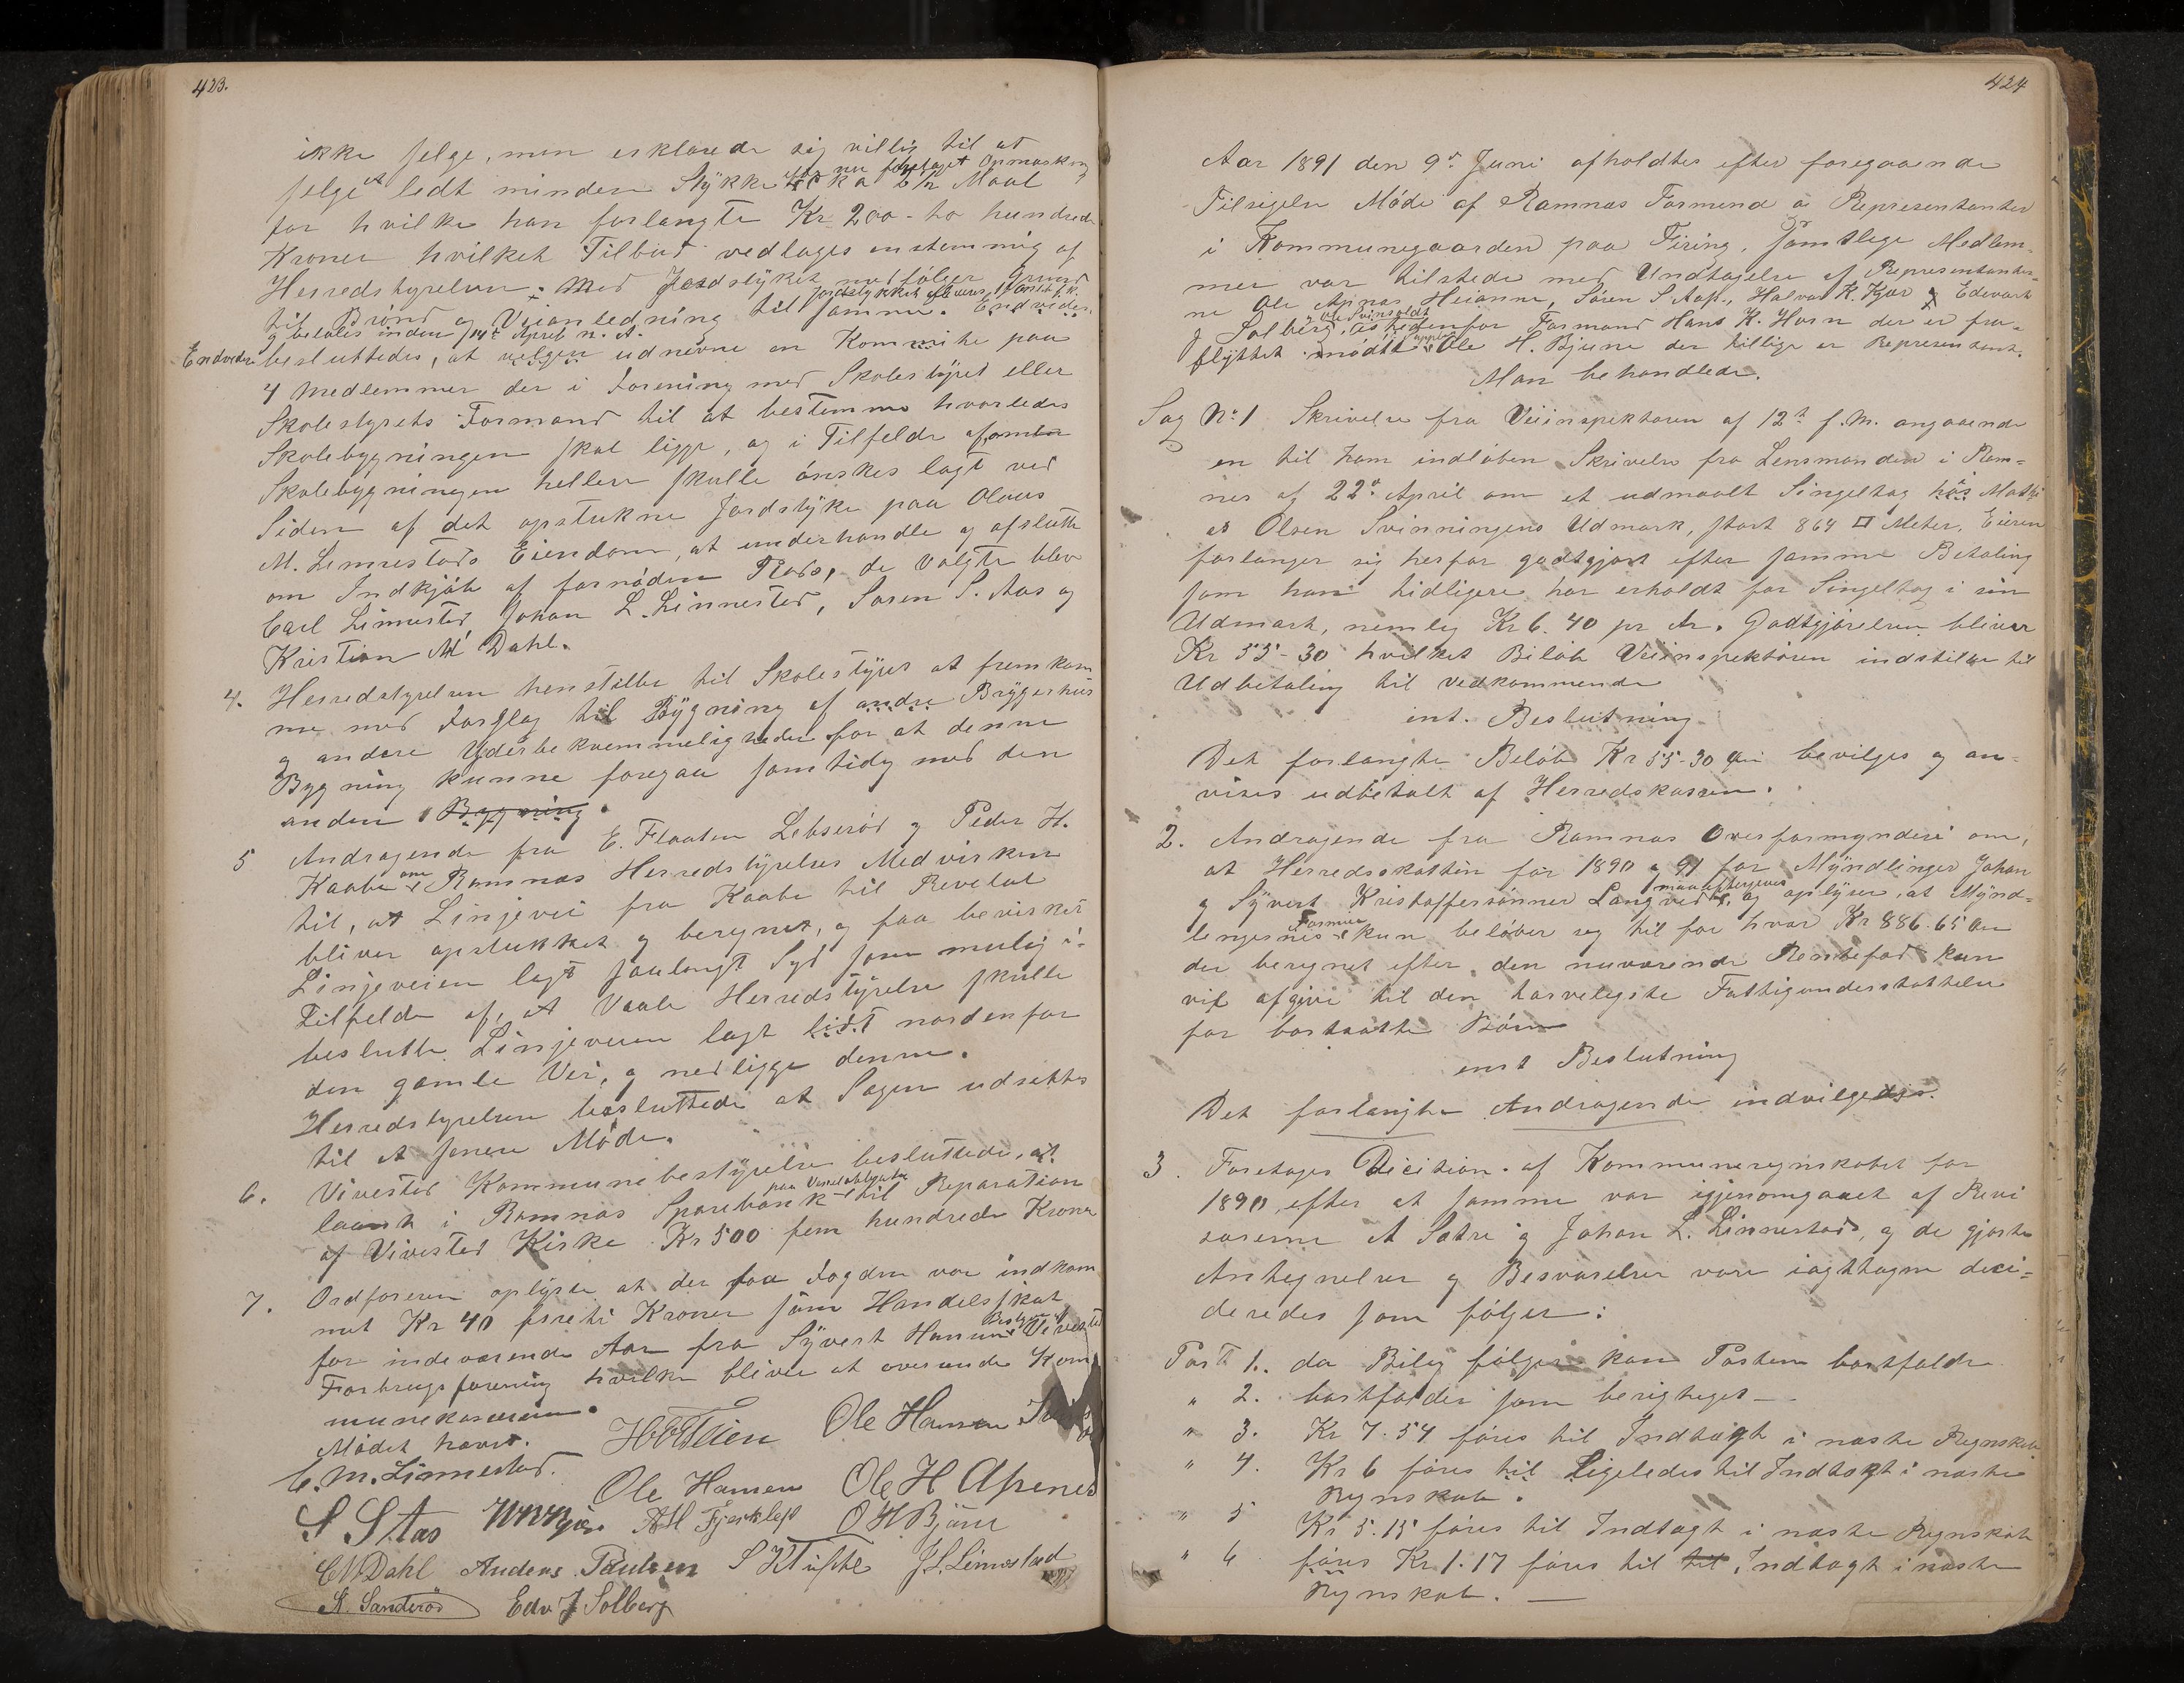 423.
ikke selge, men erklærede sig villig til at
selge et ledt mindre Stykke efter nu foretaget Opmaaling
ca 2 1/2 Maal
for hvilke han forlangte Kr 200 - to hundrede
Kroner hvilket Tilbud vedtages enstemmig af
Herredstyrelsen. Med Jordstykket medfølger Grund
til Brønd og Veianledning til samme. Endvidere
Jordstykket
og betales inden 14de April n. A.
Endvidere besluttedes, at velgen udnevne en Kommite paa
4 Medlemmer der i Forening med Skolestyret eller
Skolestyrets Formand til at bestemme hvorledes
Skolebygningen skal ligge, og i Tilfelde af
Skolebygningen heller skulle ønskes lagt ved
Siden af det opstukne Jordstyke paa Olaus
M. Linnestads Eiendom, at underhandle og afslutte
om Indkjøb af fornøden Plads, de valgte blev
Carl Linnestad Johan L. Linnestad, Søren S. Aas og
Kristian M Dahl.
4. Herredstyrelsen henstiller til Skolestyret at fremkom
me med Forslag til Bygning af andre Bryggerhus
og andere Yderbekvemmeligheder for at denne
Bygning kunne foregaa samtidig med den
anden Bygning.
5 Andragende fra E. Flaaten Lebserød og Peder H.
Kaabe om Ramnæs Herredstyrelses Medvirken
til, at Linjevei fra Kaabe til Revetal
bliver opstukket og beregnet, og faa bevirket
Linjeveien lagt saalangt Syd som mulig i
Tilfelde af, at Vaale Herredstyrelse skulle
beslutte Linjeveien lagt lidt nordenfor
den gamle Vei, og nedligge denne.
Herredstyrelsen besluttede at Sagen udsettes
til et senere Møde.
6. Vivestad Kommunebestyrelse besluttede, at
laane i Ramnæs Sparebank paa Vexelobligation til Reparation
af Vivestad Kirke Kr 500 fem hundrede Kroner
7. Ordføreren oplyste at der fra Fogden var indkom
met Kr 40 førti Kroner som Handelsskat
for indeværende Aar fra Syvert Hansen Bestyrer Vivestad
Forbrugsforening hvilke bliver at oversende Kom
munekasseren.
Mødet hævet.
Ole Hansen
C. M. Linnestad.
Ole Hansen Ole H Apenes
S S Aas A H Fjerskless O H Bjune
C M Dahl Anders Paulsen S K Tufte J. L. Linnestad
A. Sanderød Edv J Solberg
424
Aar 1891 den 9de Juni afholdtes efter foregaaende
Tilsigelse Møde af Ramnæs Formend og Representanter
i Kommunegaarden paa Firing. Samtlige Medlem-
mer var tilstede med Undtagelse af Representanter-
ne Ole Apnæs, Heianne, Søren S Aas, Halvor K. Kjær Edevart
J Solberg, Ole Svinsholdt istedenfor Formand Hans K. Horn der er fra-
flyttet mødte Ole H. Bjune der tillige er Representant.
Man behandlede.
Sag No 1 Skrivelse fra Veiinspektøren af 12te f. M. angaaende
en til ham indløben Skrivelse fra Lensmanden i Ram-
nes af 22de April om et udmaalt Singeltag hos Mathi
as Olsen Svinningens Udmark, stort 864 □ Meter, Eieren
forlanger sig herfor godtgjort efter samme Betaling
som han tidligere har erholdt for Singeltag i sin
Udmark, nemlig Kr 6.40 pr Ar. Godtgjørelsen bliver
Kr 55-30 hvilket Beløb Veiinspektøren indstiller til
Udbetaling til vedkommende
ent. Beslutning
Det forlangte Beløb Kr 55-30 Øre bevilges og an-
vises udbetalt af Herredskassen.
2. Andragende fra Ramnæs Overformynderi om,
at Herredsskatten for 1890 og 91 for Myndlinger Johan
og Syvert Kristoffersønner Langved maa eftergives, og oplyser, at Mynd-
lingernes Formue kun beløber sig til for hver Kr 886.65 Øre
der beregnet efter den nuværende Rentefod kun
vil afgive til den tarveligste Fattigunderstøttelse
for bortsatte Børn
enst Beslutning
Det forlangte Andragende indvilgedes.
3. Foretages Decition af Kommuneregnskabet for
1890, efter at samme var igjennomgaaet af Revi
sorerne A Sætre og Johan L. Linnestad, og de gjorte
Antegnelser og Besvarelser vare iagttagne deci-
deredes som følger:
Post 1. da Bilag følger kan Posten bortfalde
" 2. bortfalder som berigtiget —
" 3. Kr 7.54 føres til Indtægt i neste Regnskab
" 4. Kr 6 føres til Ligeledes til Indtægt i neste
Regnskab.
" 5 Kr 5.15 føres til Indtægt i neste Regnskab
" 6 føres Kr 1.17 føres til til Indtægt i neste
Regnskab. —